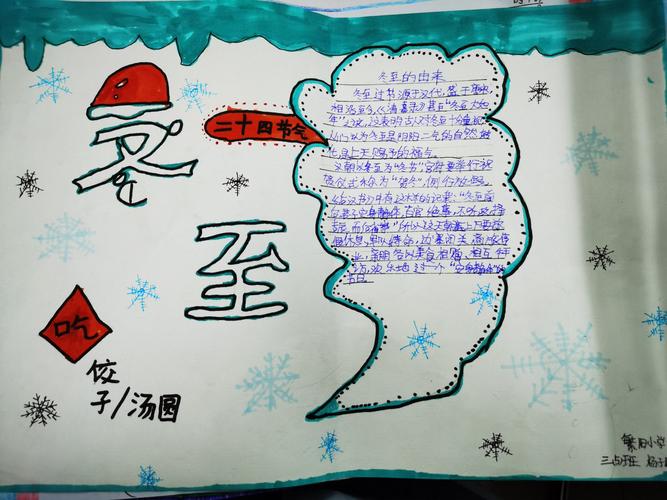 冬至
二十四节气
吃
饺
子/汤圆
冬至的由来
冬至过节源于汉代,盛于唐宋,
相沿至今。《清嘉录》甚至有“冬至大如
年”之说。这表明古人对冬至十分重视。
人们认为冬至是阴阳二气的自然转
化,是上天赐予的福气。
汉朝以冬至为“冬节”,官府要举行祝
贺仪式称为“贺冬”,例行放假。
《后汉书》中有这样的记载:“冬至前
后,君子安身静体,百官绝事,不听政,择
吉辰而后省事。”所以这天朝庭上下要放
假休息,军队待命,边塞闭关,商旅停
业,亲朋各以美食相赠,相互拜
访,欢乐地过一个“安身静体”的
节日。
繁阳小学